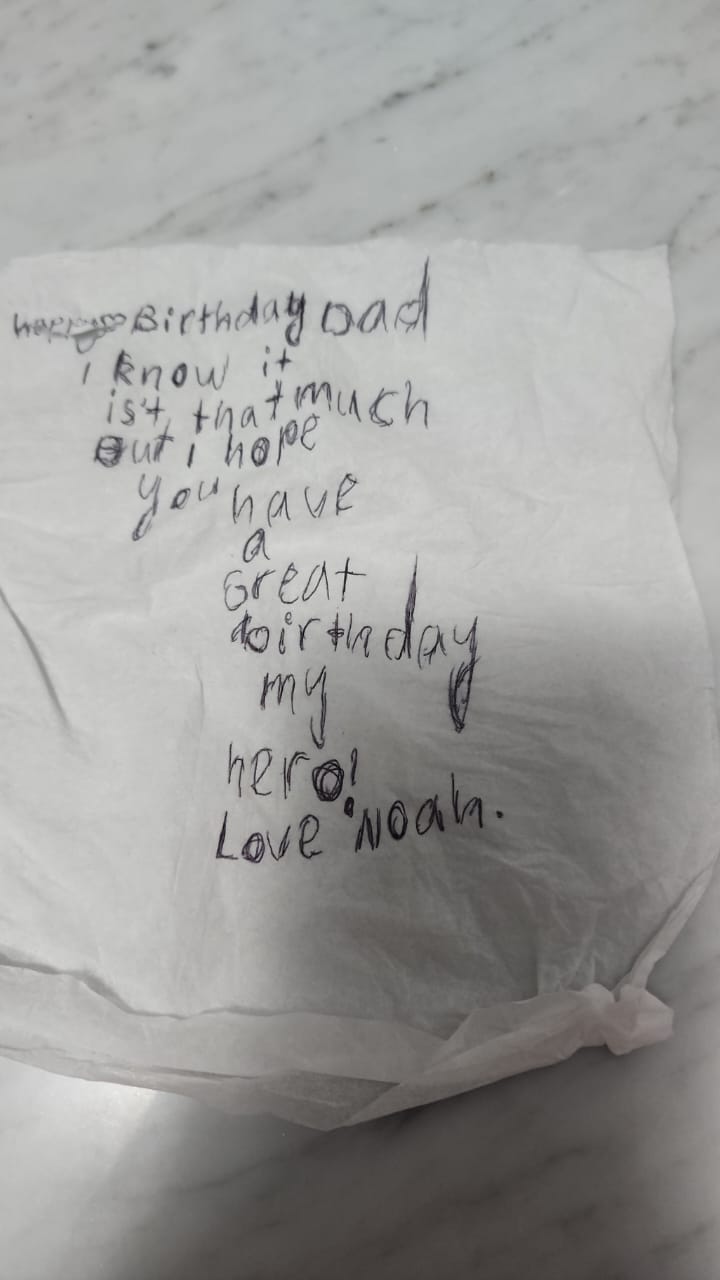 happy Birthday Dad
i know it
is't that much
But i hope
you have
a
Great
birthday
my
hero!
Love Noah.